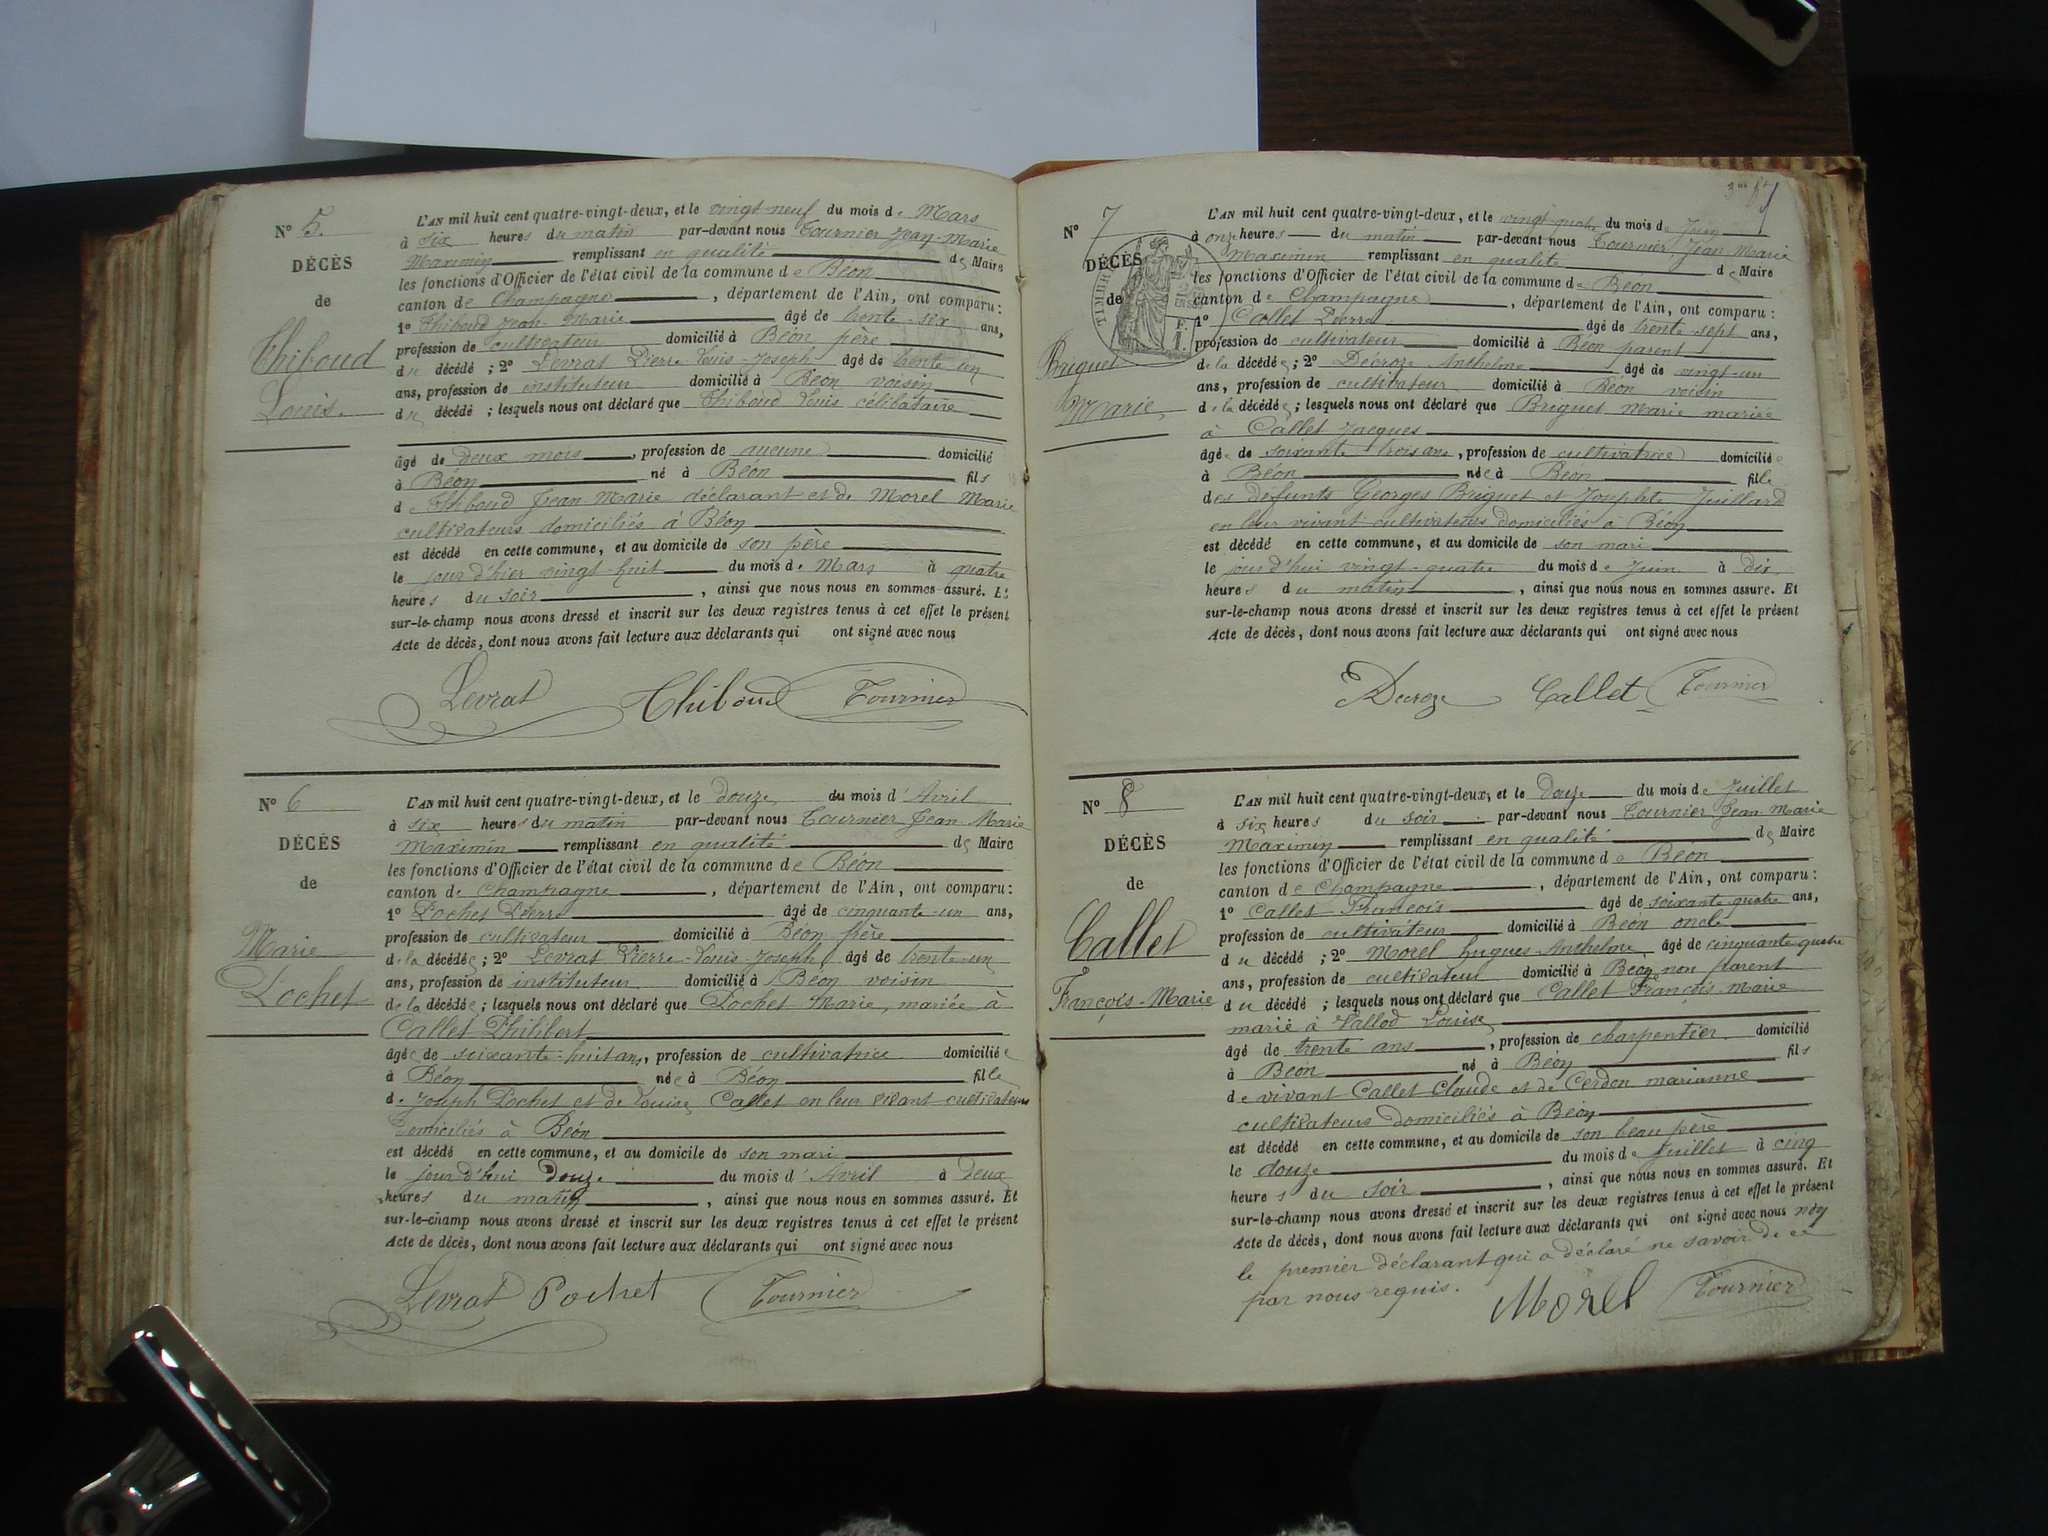 N° 5.
DÉCÈS
de
Thiboud
Louis.
L'AN mil huit cent quatre-vingt-deux, et le vingt-neuf du mois de Mars
à six heures du matin par-devant nous Tournier Jean-Marie
Maximin remplissant en qualité de Maire
les fonctions d'Officier de l'état civil de la commune de Béon
canton de Champagne, département de l'Ain, ont comparu:
1° Thiboud Jean-Marie âgé de trente-six ans,
profession de cultivateur domicilié à Béon père
du décédé ; 2° Levrat Pierre Louis-Joseph âgé de trente un
ans, profession de instituteur domicilié à Béon voisin
du décédé ; lesquels nous ont déclaré que Thiboud Louis célibataire
âgé de deux mois, profession de aucune domicilié
à Béon né à Béon fils
de Thiboud Jean Marie déclarant et de Morel Marie
cultivateurs domiciliés à Béon
est décédé en cette commune, et au domicile de son père
le jour d'hier vingt-huit du mois de Mars à quatre
heures du soir, ainsi que nous nous en sommes assuré. Et
sur-le-champ nous avons dressé et inscrit sur les deux registres tenus à cet effet le présent
Acte de décès, dont nous avons fait lecture aux déclarants qui ont signé avec nous
Levrat Thiboud Tournier
N° 6
DÉCÈS
de
Marie
Pochet
L'AN mil huit cent quatre-vingt-deux, et le douze du mois d'Avril
à six heures du matin par-devant nous Tournier Jean-Marie
Maximin remplissant en qualité de Maire
les fonctions d'Officier de l'état civil de la commune de Béon
canton de Champagne, département de l'Ain, ont comparu:
1° Pochet Pierre âgé de cinquante-un ans,
profession de cultivateur domicilié à Béon frère
de la décédée ; 2° Levrat Pierre-Louis-Joseph âgé de trente-un
ans, profession de instituteur domicilié à Béon voisin
de la décédée ; lesquels nous ont déclaré que Pochet Marie, mariée à
Callet Philibert
âgée de soixante-huit ans, profession de cultivatrice domiciliée
à Béon née à Béon fille
de Joseph Pochet et de Louise Callet en leur vivant cultivateurs
domiciliés à Béon
est décédé en cette commune, et au domicile de son mari
le jour d'hui douze du mois d'Avril à deux
heures du matin, ainsi que nous nous en sommes assuré. Et
sur-le-champ nous avons dressé et inscrit sur les deux registres tenus à cet effet le présent
Acte de décès, dont nous avons fait lecture aux déclarants qui ont signé avec nous
Levrat Pochet Tournier
N° 7
DÉCÈS
de
Briguet
Marie
TIMBRE
L'AN mil huit cent quatre-vingt-deux, et le vingt-quatre du mois de Juin
à onze heures du matin par-devant nous Tournier, Jean Marie
Maximin remplissant en qualité de Maire
les fonctions d'Officier de l'état civil de la commune de Béon
canton de Champagne, département de l'Ain, ont comparu:
1° Callet Pierre âgé de trente sept ans,
profession de cultivateur domicilié à Béon parent
de la décédée ; 2° Décroze Anthelme âgé de vingt-un
ans, profession de cultivateur domicilié à Béon voisin
de la décédée ; lesquels nous ont déclaré que Briguet Marie mariée
à Callet Jacques
âgée de soixante trois ans, profession de cultivatrice domiciliée
à Béon née à Béon fille
des défunts Georges Briguet et Josephte Juillard
en leur vivant cultivateurs domiciliés à Béon
est décédé en cette commune, et au domicile de son mari
le jour d'hui vingt-quatre du mois de Juin à dix
heures du matin, ainsi que nous nous en sommes assuré. Et
sur-le-champ nous avons dressé et inscrit sur les deux registres tenus à cet effet le présent
Acte de décès, dont nous avons fait lecture aux déclarants qui ont signé avec nous
Decroze Callet Tournier
N° 8
DÉCÈS
de
Callet
François-Marie
L'AN mil huit cent quatre-vingt-deux, et le douze du mois de Juillet
à six heures du soir par-devant nous Tournier Jean Marie
Maximin remplissant en qualité de Maire
les fonctions d'Officier de l'état civil de la commune de Béon
canton de Champagne, département de l'Ain, ont comparu:
1° Callet François âgé de soixante quatre ans,
profession de cultivateur domicilié à Béon oncle
du décédé ; 2° Morel Hugues Anthelme âgé de cinquante quatre
ans, profession de cultivateur domicilié à Béon non parent
du décédé ; lesquels nous ont déclaré que Callet François Marie
marié à Vallod Louise
âgé de trente ans, profession de charpentier domicilié
à Béon né à Béon fils
de vivant Callet Claude et de Cerdon marianne
cultivateurs domiciliés à Béon
est décédé en cette commune, et au domicile de son beau père
le douze du mois de Juillet à cinq
heures du soir, ainsi que nous nous en sommes assuré. Et
sur-le-champ nous avons dressé et inscrit sur les deux registres tenus à cet effet le présent
Acte de décès, dont nous avons fait lecture aux déclarants qui ont signé avec nous non
le premier déclarant qui a déclaré ne savoir de ce
par nous requis.
Morel Tournier